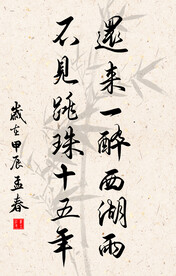 還来一醉西湖雨
不見跳珠十五年
歲在甲辰孟春